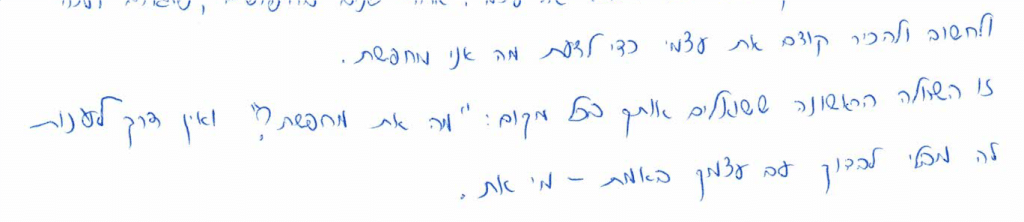 ולחשוב ולהכיר קודם את עצמי כדי לדעת מה אני מחפשת.
זו השאלה הראשונה ששואלים אותך בכל מקום: "מה את מחפשת?" ואין דרך לענות
לה מבלי לבדוק עם עצמך באמת - מי את.